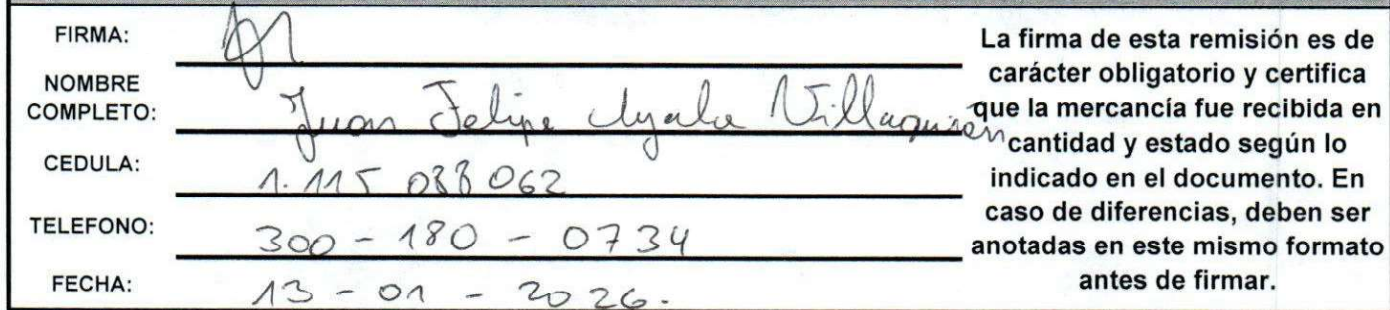 FIRMA:
NOMBRE COMPLETO: Juan Felipe Ayala Villaquirán
CEDULA: 1.115 088 062
TELEFONO: 300 - 180 - 0734
FECHA: 13 - 01 - 2026.
La firma de esta remisión es de
carácter obligatorio y certifica
que la mercancía fue recibida en
cantidad y estado según lo
indicado en el documento. En
caso de diferencias, deben ser
anotadas en este mismo formato
antes de firmar.